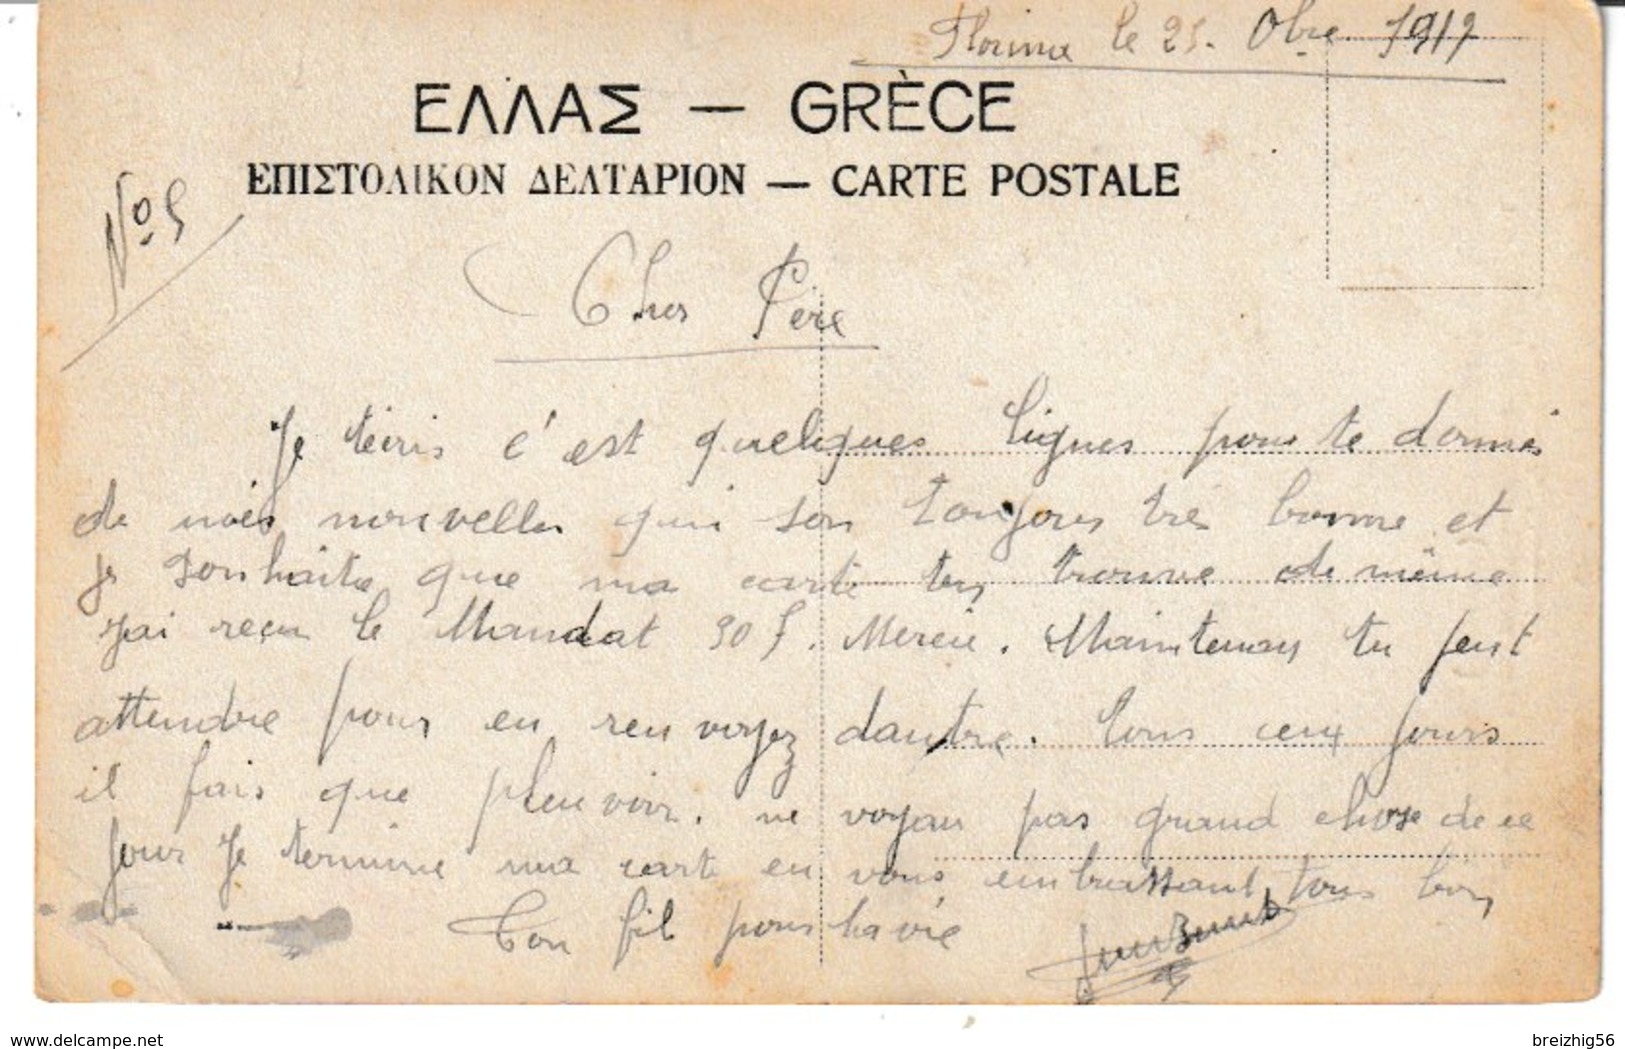 Florina le 25. Obre 1917
ΕΛΛΑΣ — GRÈCE
ΕΠΙΣΤΟΛΙΚΟΝ ΔΕΛΤΑΡΙΟΝ — CARTE POSTALE
No 5
Cher Père
Je t'ecris c'est quelques lignes pour te donnes
de mes nouvelles qui son toujours très bonne et
je souhaite que ma carte trouve de même
J'ai reçu le Mandat 30 f. Mercie. Maintenant tu peut
attendre pour en renvoyez dautre. Tous ceux jours
il fais que pleuvoir. ne voyan pas grand chose de ce
jour Je termine ma carte en vous embrassant tous bon
Ton fil pour la vie
www.delcampe.net
breizhig56